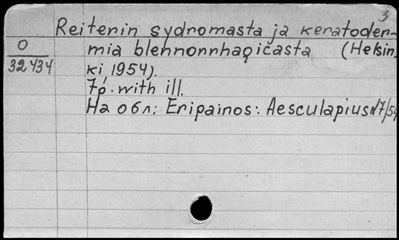 3
Reitenin sydromasta ja keratoder-
0 mia blehnonnhagicasta (Helsin,
32434 ki 1954).
7p. with ill.
На обл: Eripainos: Aesculapius N7/54